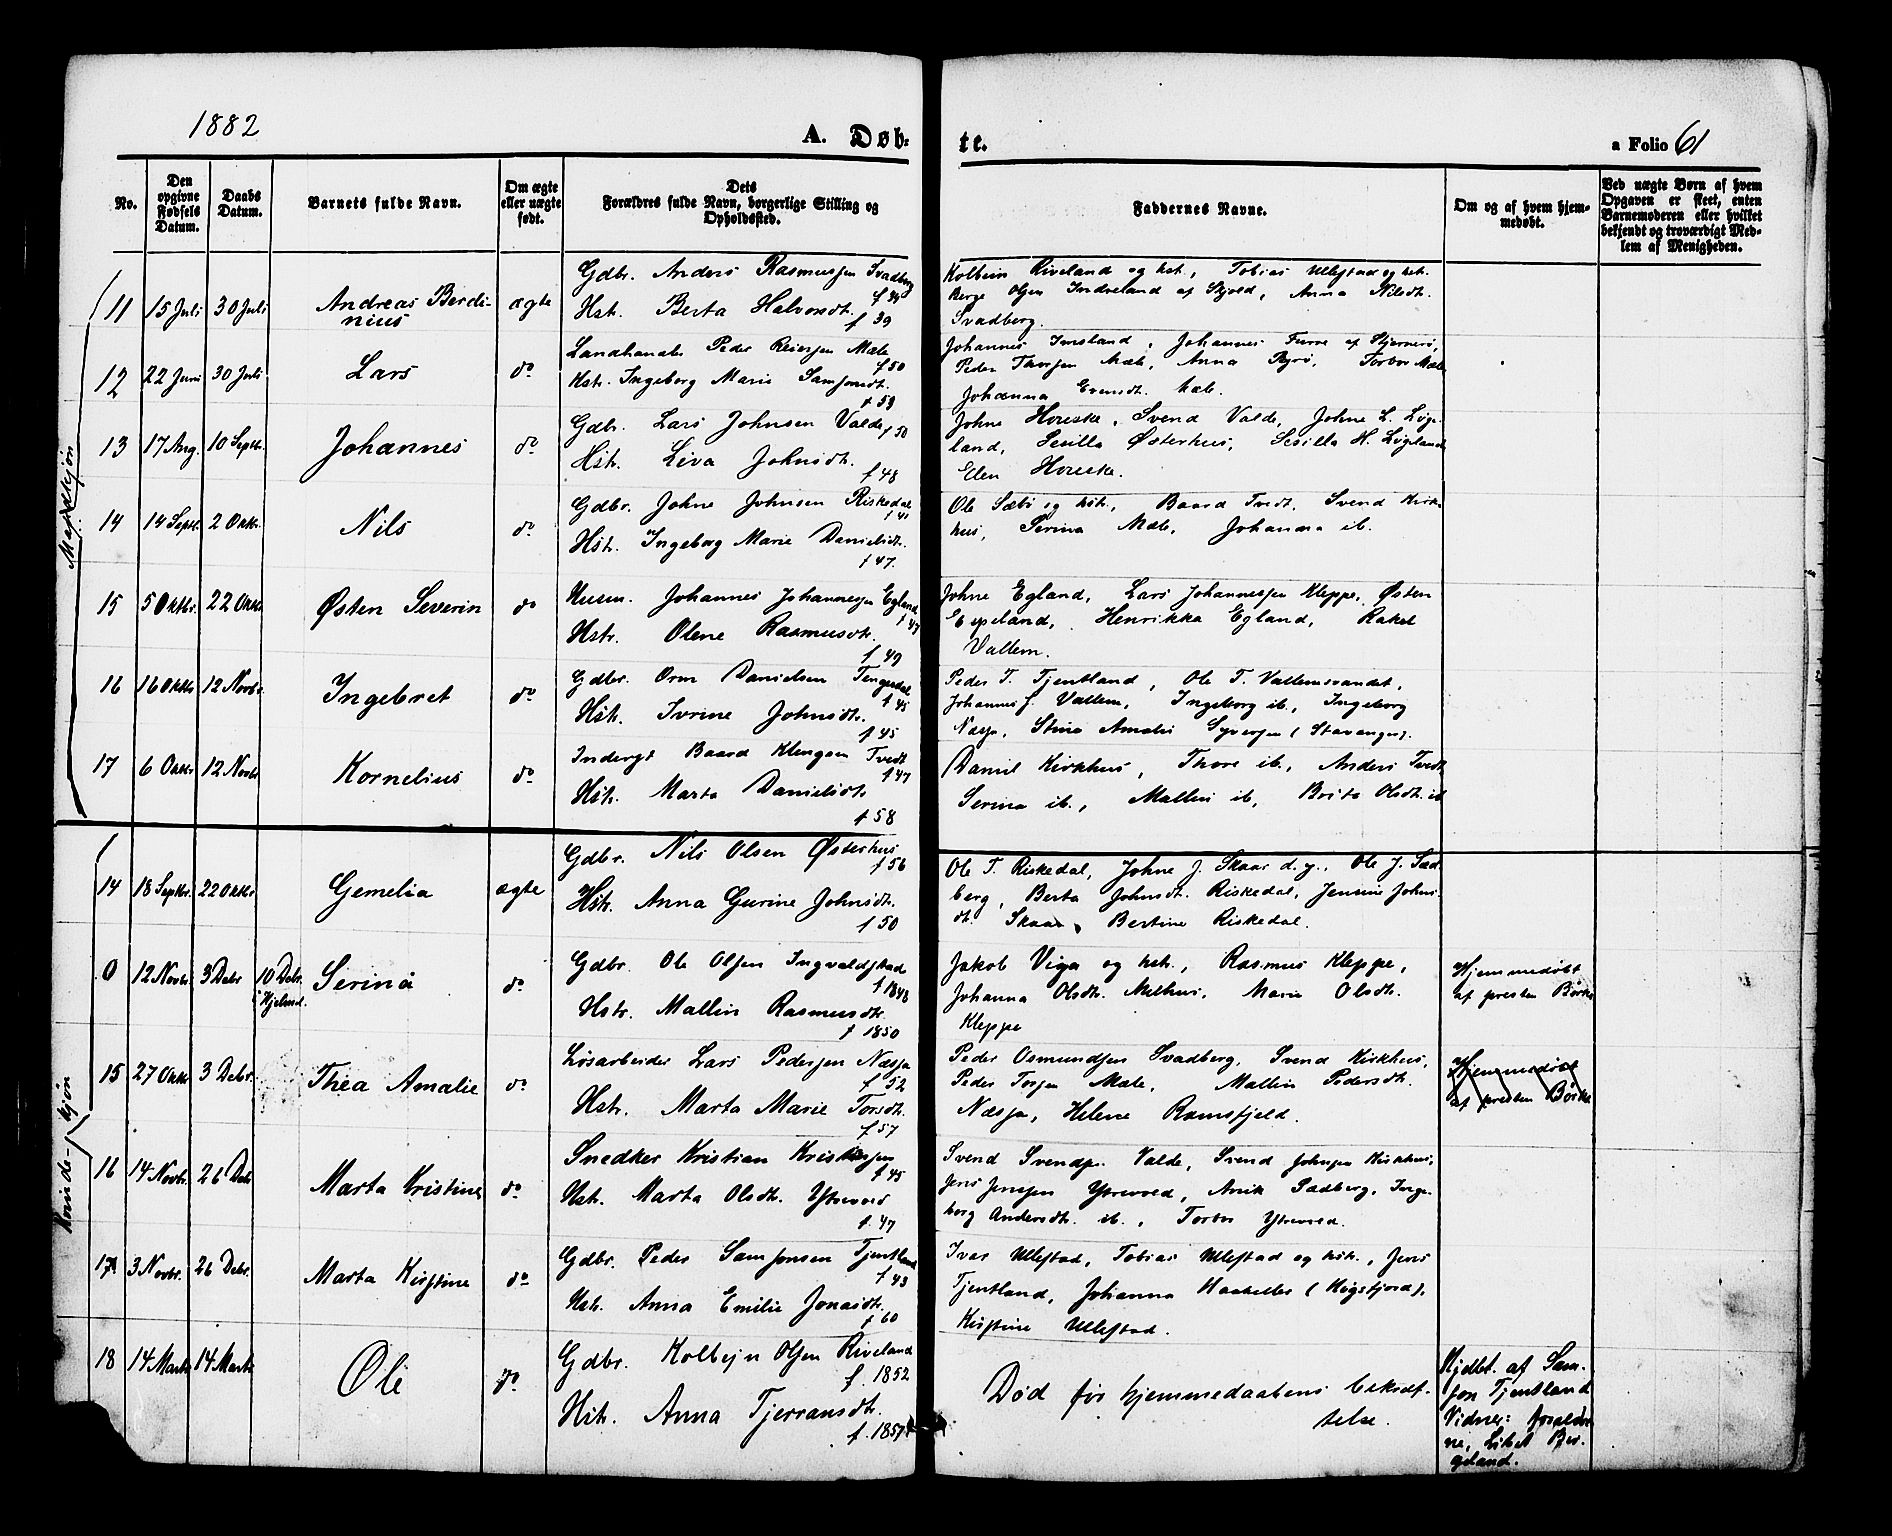 1882
A. Døb-
te.
a Folio 61
No.
Den opgivne Fødsels Datum.
Daabs Datum.
Barnets fulde Navn.
Om ægte eller uægte født.
Dets Forældres fulde Navn, borgerlige Stilling og Opholdssted.
Faddernes Navne.
Om og af hvem hjemmedøbt.
Ved uægte Børn af hvem Opgaven er skeet, enten Barnemoderen eller hvilket bekjendt og troværdigt Medlem af Menigheden.
Mandkjøn
11 15 Juli 30 Juli Andreas Berdi-
nius
ægte
Gdbr. Anders Rasmussen Svadberg
Hst. Berta Halvorsdt. f 39
Kolbein Riveland og hst., Tobias Ullestad og hst.
Berge Olsen Indreland af Skjold, Anna Nilsdt.
Svadberg.
12 22 Juni 30 Juli Lars do
Landhandl. Peder Reiersen Mæle f 50
Hst. Ingeborg Marie Samsonsdt. f 59
Johannes Imsland, Johannes Furre af Stjernerø,
Peder Thorsen Mæle, Anna Byrø, Torbor Mæle
Johanna Evensdt. Mæle.
13 17 Aug. 10 Septbr. Johannes do
Gdbr. Lars Johnsen Valde f 50
Hst. Liva Johnsdt. f 48
Johne Hoveske, Svend Valde, Johne L. Løge-
land, Sesilla Østerhus, Sesilla H. Løgeland
Elen Hoveske.
14 14 Septr. 2 Oktr. Nils do
Gdbr. Johne Johnsen Riskedal f 41
Hst. Ingeborg Marie Danielsdt. f 47.
Ole Sæbø og hst., Baard Tvedt, Svend Kirk-
hus, Serina Mæle, Johanna ib.
15 5 Oktbr. 22 Okt. Østen Severin do
Husm. Johannes Johannessen Egland f 47
Hst. Olene Rasmusdt. f 49
Johne Egland, Lars Johannessen Kleppe, Østen
Espeland, Henrikka Egland, Rakel
Vallem.
16 16 Oktr 12 Novbr. Ingebret do
Gdbr. Orm Danielsen Tengesdal f 45
Hst. Ivrine Johnsdt. f 45
Peder T. Tjentland, Ole T. Vallemsvandet,
Johannes J. Vallem, Ingeborg ib., Ingeborg
Næsja, Stina Amalie Syversen (Stavanger).
17 6 Oktr 12 Novbr Kornelius do
Inderst Baard Klengsen Tvedt f 47
Hst. Marta Danielsdt. f 58
Daniel Kirkhus, Thore ib., Anders Tvedt
Serina ib., Mallin ib., Brita Olsdt. ib
Kvinde-kjøn
14 18 Septbr. 22 Oktbr Gemelia ægte
Gdbr. Nils Olsen Østerhus f 56
Hst. Anna Gurine Johnsdt. f 50
Ole T. Riskedal, Johne J. Skaar d.y., Ole J. Sad-
berg, Berta Johnsdt. Riskedal, Jensine Johns-
dt. Skaar, Bertine Riskedal.
0 12 Novbr. 3 Debr 10 Debr. i Hjelmel. Serina do
Gdbr. Ole Olsen Ingvaldstad f 1848
Hst. Mallin Rasmusdt. f 1850
Jakob Viga og hst., Rasmus Kleppe,
Johanna Olsdt. Melhus, Marie Olsdt.
Kleppe
Hjemmedøbt
af presten Børke
15 27 Oktr 3 Debr. Thea Amalie do
Løsarbeider Lars Pedersen Næsja f 52
Hst. Marta Marie Torsdt. f 57
Peder Osmundsen Svadberg, Svend Kirkhus,
Peder Torsen Mæle, Mallin Pedersdt.
Næsja, Helene Ramsfjeld.
Hjemmedøbt
af presten Børke
16 14 Novbr. 26 Deb Marta Kristine do
Snedker Kristian Kristensen f 45
Hst. Marta Olsdt. Ytrevord f. 47
Svend Svendsen Valde, Svend Johnsen Kirkhus,
Jens Jenssen Ytrevord, Anik Sadberg, Inge-
borg Andersdt. ib., Torbor Ytrevord.
17 3 Novbr. 26 Debr. Marta Kistine do
Gdbr. Peder Samsonsen Tjentland f 43
Hst. Anna Emilie Jonasdt. f 60
Ivar Ullestad, Tobias Ullestad og hst., Jens
Tjentland, Johanna Haaheller (Høgsfjord),
Kistine Ullestad.
18 14 Marts 14 Marts Oli do
Gdbr. Kolbejn Olsen Riveland f. 1852
Hst. Anna Tjerransdt. f. 1857
Død før hjemmedaabens bekræf-
telse.
Hjdbt. af Sam-
son Tjentland
Vidner: forældre-
ne, Lisbet Ber-
geland.